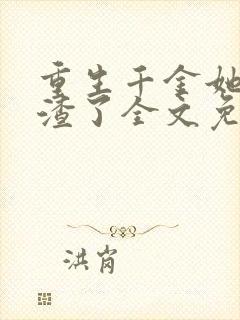 重生千金她
渣了全文免
洪岗